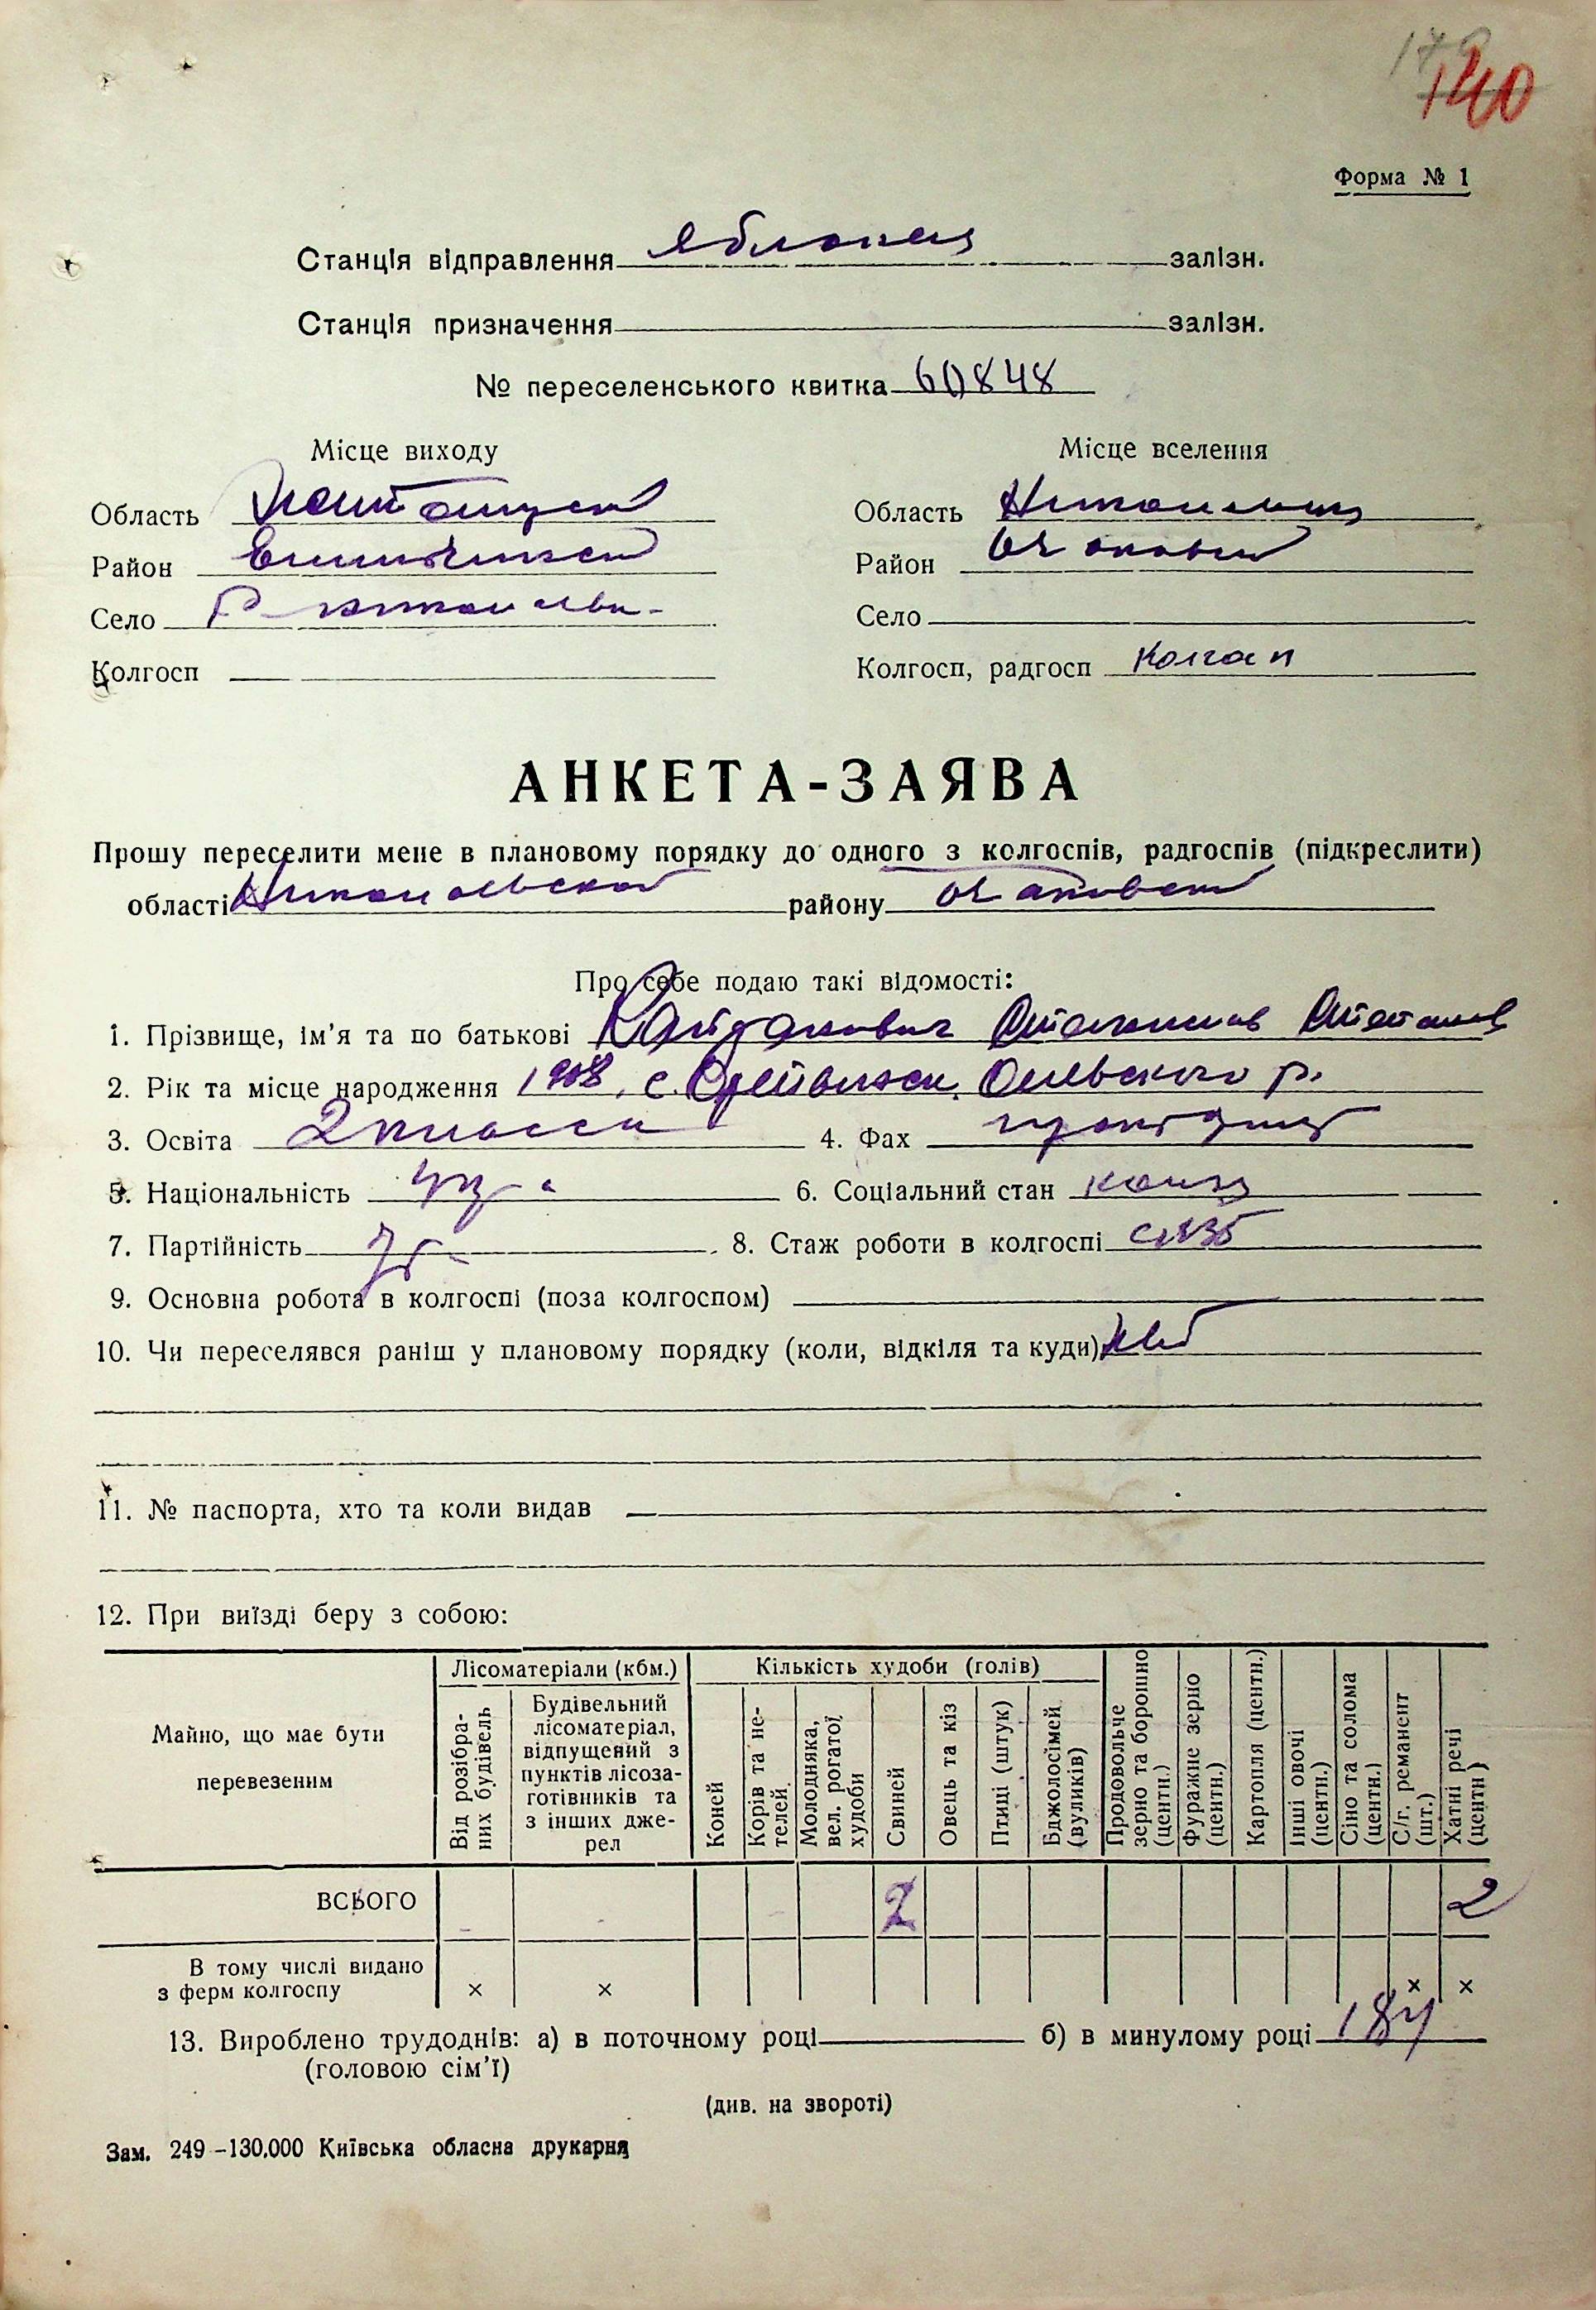 140
Форма № 1
Станція відправлення Яблонец залізн.
Станція призначення залізн.
№ переселенського квитка 60848
Місце виходу Місце вселення
Область Житомирской Область Николаевск
Район Емильчинский Район Очаковский
Село Село
Колгосп Колгосп, радгосп Колхоз
АНКЕТА-ЗАЯВА
Прошу переселити мене в плановому порядку до одного з колгоспів, радгоспів (підкреслити)
області Николаевской району Очаковский
Про себе подаю такі відомості:
1. Прізвище, ім'я та по батькові Станислав
2. Рік та місце народження 1908, с. Олевского р.
3. Освіта 2 класса 4. Фах
5. Національність Укр 6. Соціальний стан колхоз
7. Партійність б/п 8. Стаж роботи в колгоспі
9. Основна робота в колгоспі (поза колгоспом)
10. Чи переселявся раніш у плановому порядку (коли, відкіля та куди) нет
11. № паспорта, хто та коли видав
12. При виїзді беру з собою:
Майно, що має бути перевезеним
Лісоматеріали (кбм.) Кількість худоби (голів)
Від розібраних будівель
Будівельний лісоматеріал, відпущений з пунктів лісозаготівників та з інших джерел
Коней
Корів та нетелей
Молодняка, вел. рогатої худоби
Свиней
Овець та кіз
Птиці (штук)
Бджолосімей (вуликів)
Продовольче зерно та борошно (центн.)
Фуражне зерно (центн.)
Картопля (центн.)
Інші овочі (центн.)
Сіно та солома (центн.)
С/г. реманент (шт.)
Хатні речі (центн)
ВСЬОГО 2 2
В тому числі видано
з ферм колгоспу × × × ×
13. Вироблено трудоднів: а) в поточному році б) в минулому році 184
(головою сім'ї)
(див. на звороті)
Зам. 249-130.000 Київська обласна друкарня